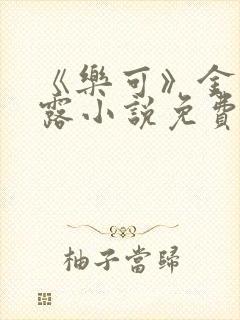 《樂可》金
露小說免費
柚子當歸